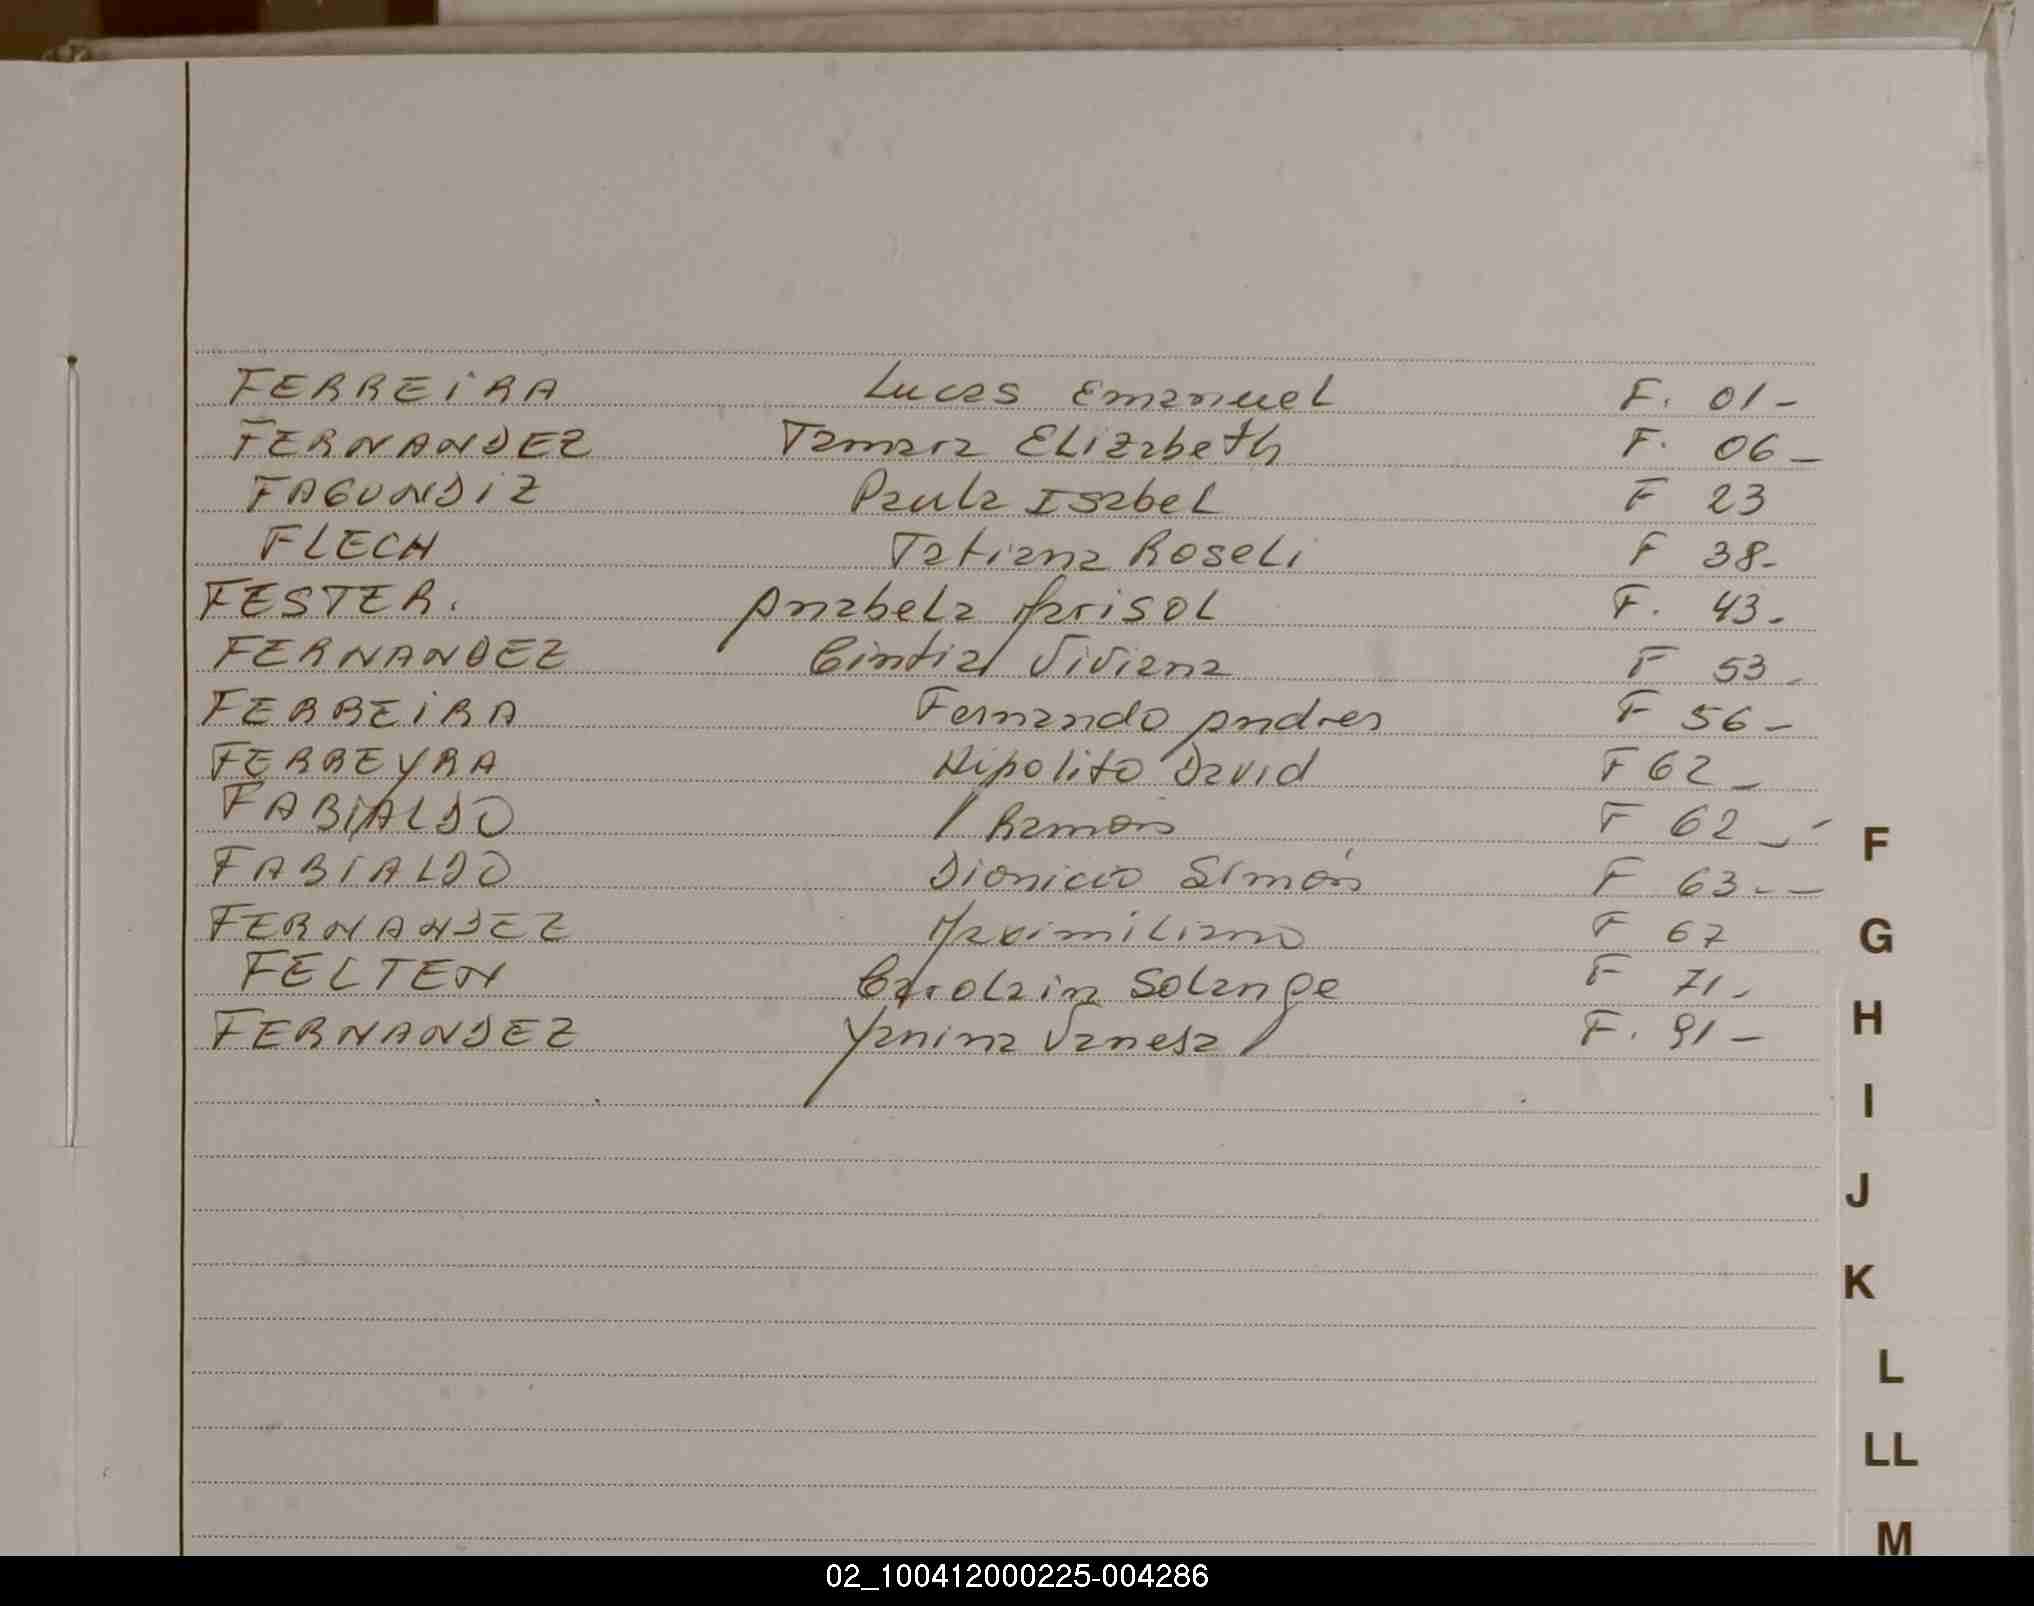 FERREiRA Lucas Emanuel F. 01-
FERNANDEZ Tamara Elizabeth F. 06-
FAGUNDiZ Paula Isabel F 23
FLECH Tatiana Roseli F 38-
FESTER. Anabela Marisol F. 43-
FERNANDEZ Cintia Viviana F 53-
FERREiRA Fernando Andres F 56-
FERREYRA Hipolito David F 62-
FABIALDO Ramón F 62-
FABIALDO Dionicio Simón F 63--
FERNANDEZ Maximiliano F 67
FELTEN Carolain Solange F 71-
FERNANDEZ Yanina Vanesa F. 91-
F
G
H
I
J
K
L
LL
M
02_100412000225-004286